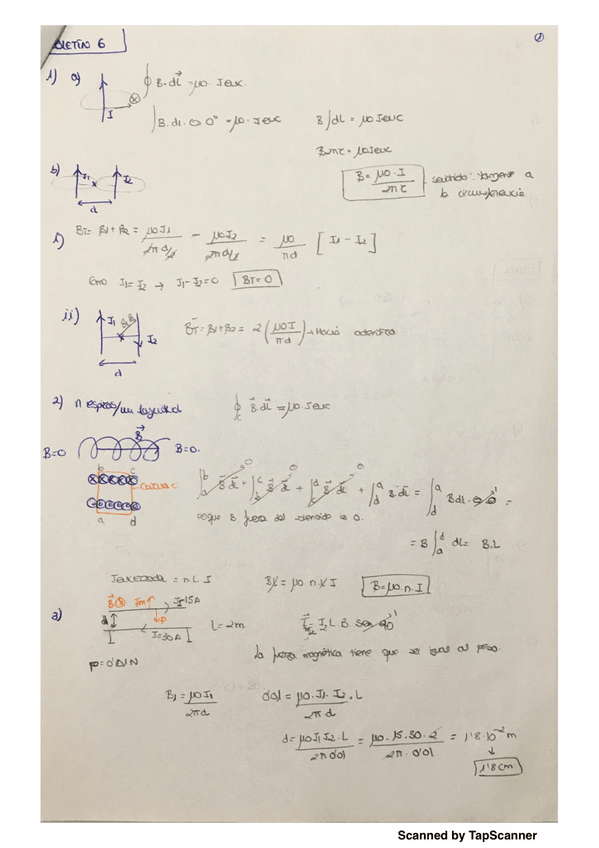 BOLETÍN 6
1
1) a) ∮ B·dL = μ0·Ienc
I
∫B·dL·cos 0° = μ0·Ienc B∫dL = μ0 Ienc
B2πr = μ0 Ienc
b) I1 I2 B = μ0·I / 2πr sentido: tangente a
la circunferencia
d
i) BT = B1 + B2 = μ0I1 / 2πd/2 − μ0I2 / 2πd/2 = μ0 / πd [I1 − I2]
Como I1 = I2 → I1 − I2 = 0 BT = 0
ii) I1 B1 B2 I2 BT = B1 + B2 = 2 (μ0I / πd) → Hacia adentro
d
2) n espiras/un longitud ∮c B dL = μ0·Ienc
B=0 B B=0.
b c curva c
a d
∫a b B dL + ∫b c B dL + ∫c d B dL + ∫d a B dL = ∫d a B dL · cos 0 =
0 0 0 1
B fuera del solenoide = 0.
= B ∫ a d dL = B·L
Iencerrada = n·L·I BL = μ0·n·L I B = μ0·n·I
3) B Fm I=15A
d P
I=30A L = 2m Fm = I2 L B sen 90 1
P = 0'01 N la fuerza magnética tiene que ser igual al peso.
B1 = μ0 I1 / 2πd 0'01 = μ0·I1·I2·L / 2πd
d = μ0 I1 I2·L / 2π 0'01 = μ0·15·30·2 / 2π·0'01 = 1'8·10⁻² m
↓
1'8 cm
Scanned by TapScanner